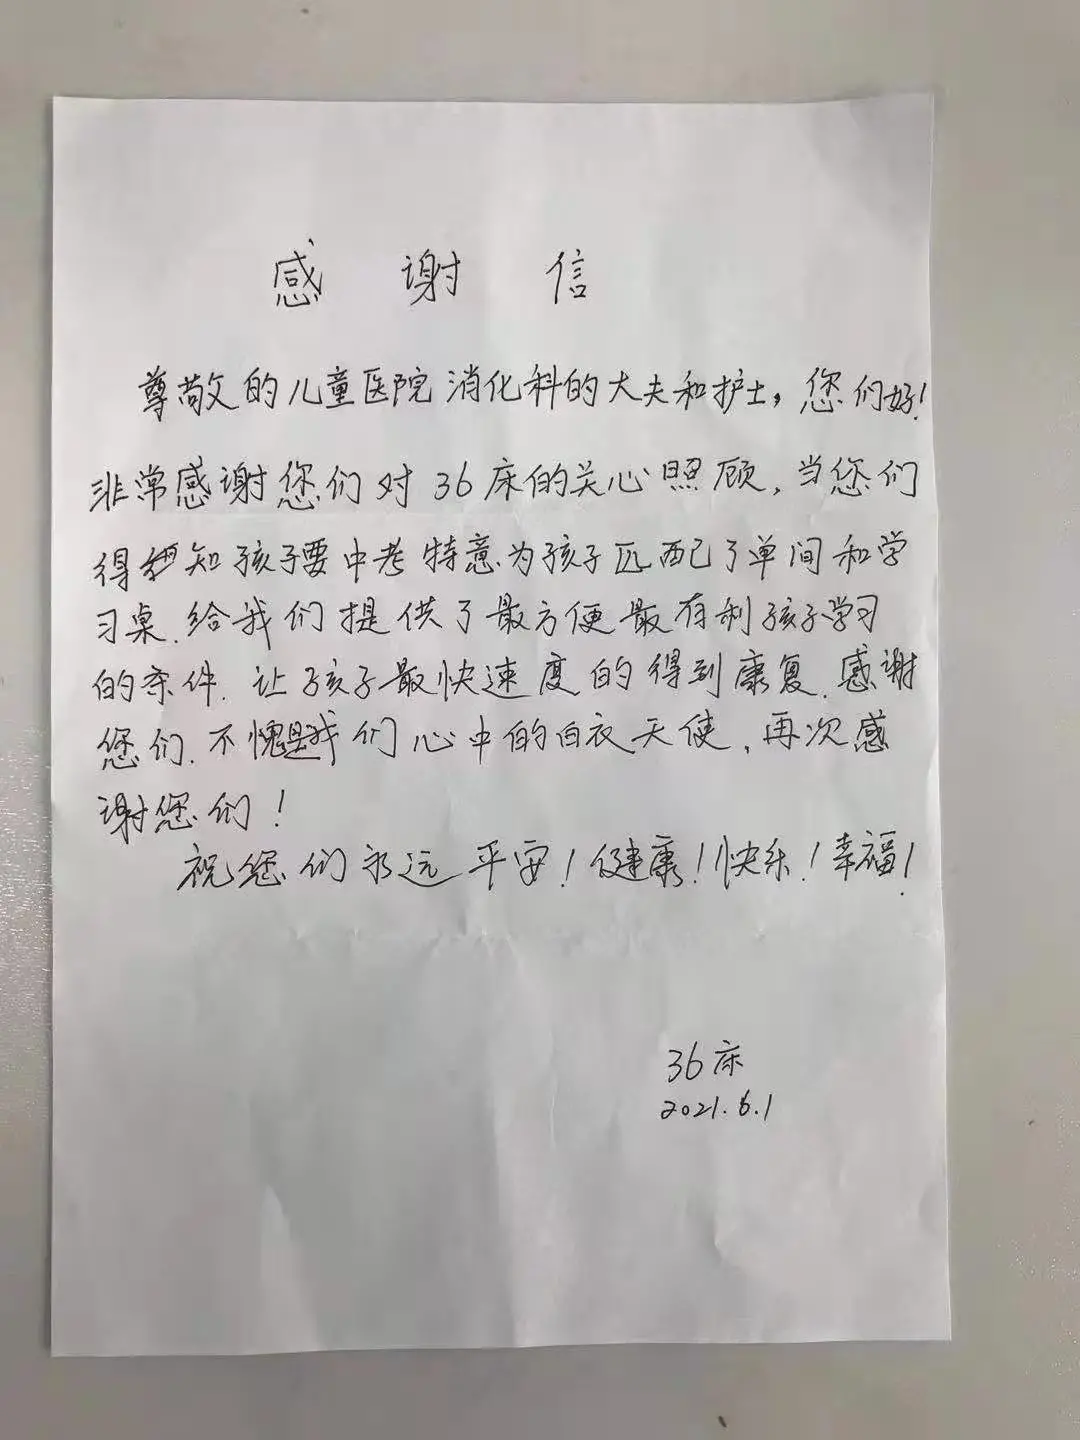 感谢信
尊敬的儿童医院消化科的大夫和护士，您们好！
非常感谢您们对36床的关心照顾，当您们
得知孩子要中考特意为孩子匹配了单间和学
习桌.给我们提供了最方便最有利孩子学习
的条件.让孩子最快速度的得到康复.感谢
您们.不愧是我们心中的白衣天使，再次感
谢您们！
祝您们永远平安！健康！快乐！幸福！
36床
2021.6.1